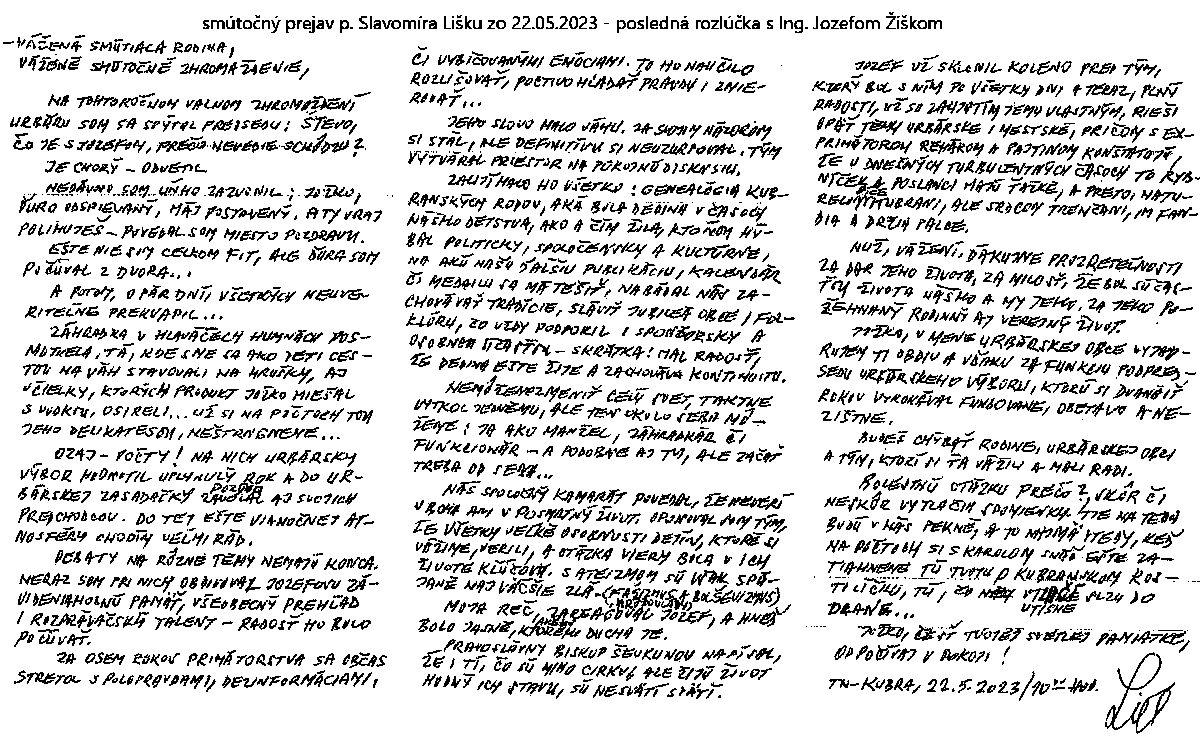 smútočný prejav p. Slavomíra Lišku zo 22.05.2023 - posledná rozlúčka s Ing. Jozefom Žiškom
-VÁŽENÁ SMÚTIACA RODINA,
VÁŽENÉ SMÚTOČNÉ ZHROMAŽDENIE,
NA TOHTOROČNOM VALNOM ZHROMAŽDENÍ
URBÁRU SOM SA SPÝTAL PREDSEDU: ŠTEVO,
ČO JE S JOZEFOM, PREČO NEVEDIE SCHÔDZU?
JE CHORÝ - ODVETIL
NEDÁVNO SOM UŇHO ZAZVONIL: JOŽKO,
ĎURO ODSPIEVANÝ, MÁJ POSTAVENÝ, A TY VRAJ
POLIHUJEŠ - POVEDAL SOM MIESTO POZDRAVU.
EŠTE NIE SOM CELKOM FIT, ALE ĎURA SOM
POČÚVAL Z DVORA...
A POTOM, O PÁR DNÍ, VŠETKÝCH NEUVE-
RITEĽNE PREKVAPIL...
ZÁHRADKA V HLAVÁČECH HUMNÁCH POS-
MUTNELA, TÁ, KDE SME SA AKO DETI CES-
TOU NA VÁH STAVOVALI NA HRUŠKY, AJ
VČIELKY, KTORÝCH PRODUKT JOŽKO MIEŠAL
S VODKOU, OSIRELI... UŽ SI NA POČTOCH TOU
JEHO DELIKATESOU, NEŠTRNGNEME...
OZAJ - POČTY! NA NICH URBÁRSKY
VÝBOR HODNOTIL UPLYNULÝ ROK A DO UR-
BÁRSKEJ ZASADAČKY POZVAL AJ SVOJICH
PREDCHODCOV. DO TEJ EŠTE VIANOČNEJ AT-
MOSFÉRY CHODÍM VEĽMI RÁD.
DEBATY NA RÔZNE TÉMY NEMAJÚ KONCA.
NERAZ SOM PRI NICH OBDIVOVAL JOZEFOVU ZÁ-
VIDENIAHODNÚ PAMÄŤ, VŠEOBECNÝ PREHĽAD
I ROZPRÁVAČSKÝ TALENT - RADOSŤ HO BOLO
POČÚVAŤ.
ZA OSEM ROKOV PRIMÁTORSTVA SA OBČAS
STRETOL S POLOPRAVDAMI, DEZINFORMÁCIAMI,
ČI VYBIČOVANÝMI EMÓCIAMI. TO HO NAUČILO
ROZLIŠOVAŤ, POCTIVO HĽADAŤ PRAVDU I ZMIE-
ROVAŤ...
JEHO SLOVO MALO VÁHU. ZA SVOJIM NÁZOROM
SI STÁL, ALE DEFINITÍVU SI NEUZURPOVAL. TÝM
VYTVÁRAL PRIESTOR NA POKOJNÚ DISKUSIU.
ZAUJÍMALO HO VŠETKO: GENEALÓGIA KUB-
RANSKÝCH RODOV, AKÁ BOLA DEDINA V ČASOCH
NÁŠHO DETSTVA, AKO A ČÍM ŽILA, KTO ŇOU HÝ-
BAL POLITICKY, SPOLOČENSKY A KULTÚRNE,
NA AKÚ NAŠU ĎALŠIU PUBLIKÁCIU, KALENDÁR
ČI MEDAILU SA MÁ TEŠIŤ, NABÁDAL NÁS ZA-
CHOVÁVAŤ TRADÍCIE, SLÁVIŤ JUBILEÁ OBCE I FOL-
KLÓRU, ČO VŽDY PODPORIL I SPONZORSKY A
OSOBNOU ÚČASŤOU - SKRÁTKA: MAL RADOSŤ,
ŽE DEDINA EŠTE ŽIJE A ZACHOVÁVA KONTINUITU.
NEMÔŽEME ZMENIŤ CELÝ SVET, TAKTNE
VYTKOL JEDNÉMU, ALE TEN OKOLO SEBA MÔ-
ŽEME: JA AKO MANŽEL, ZÁHRADKÁR ČI
FUNKCIONÁR - A PODOBNE AJ TY, ALE ZAČAŤ
TREBA OD SEBA...
NÁŠ SPOLOČNÝ KAMARÁT POVEDAL, ŽE NEVERÍ
V BOHA ANI V POSMRTNÝ ŽIVOT. OPONOVAL SOM TÝM,
ŽE VŠETKY VEĽKÉ OSOBNOSTI DEJÍN, KTORÉ SI
VÁŽIME, VERILI, A OTÁZKA VIERY BOLA V ICH
ŽIVOTE KĽÚČOVOU. S ATEIZMOM SÚ VŠAK SPO-
JENÉ NAJVÄČŠIE ZLÁ. (FAŠIZMUS A BOĽŠEVIZMUS)
MOJA REČ, ZAREAGOVAL JOZEF, A HNEĎ
BOLO JASNÉ, KTORÉHO DUCHA JE.
PRAVOSLÁVNY BISKUP ŠEVKUNOV NAPÍSAL,
ŽE I TÍ, ČO SÚ MIMO CIRKVI, ALE ŽIJÚ ŽIVOT
HODNÝ ICH STAVU, SÚ NESVÄTÍ SVÄTÍ.
JOZEF UŽ SKLONIL KOLENO PRED TÝM,
KTORÝ BOL S NÍM PO VŠETKY DNI A TERAZ, PLNÝ
RADOSTI, UŽ SO ZANIETENÍM JEMU VLASTNÝM, RIEŠI
OPÄŤ TÉMY URBÁRSKE I MESTSKÉ, PRIČOM S EX-
PRIMÁTOROM REHÁKOM A PAJTINOM KONŠTATUJÚ,
ŽE V DNEŠNÝCH TURBULENTNÝCH ČASOCH TO RYB-
NÍČEK A POSLANCI MAJÚ ŤAŽKÉ, A PRETO, NATU-
RELOM KUBRANI, ALE SRDCOM TRENČANI, IM FAN-
DIA A DRŽIA PALCE.
NUŽ, VÁŽENÍ, ĎAKUJME PROZRETEĽNOSTI
ZA DAR JEHO ŽIVOTA, ZA MILOSŤ, ŽE BOL SÚČAS-
ŤOU ŽIVOTA NÁŠHO A MY JEHO. ZA JEHO PO-
ŽEHNANÝ RODINNÝ AJ VEREJNÝ ŽIVOT.
JOŽKA, V MENE URBÁRSKEJ OBCE VYJAD-
RUJEM TI OBDIV A VĎAKU ZA FUNKCIU PODPRED-
SEDU URBÁRSKEHO VÝBORU, KTORÚ SI DVANÁSŤ
ROKOV VYKONÁVAL FUNDOVANE, OBETAVO A NE-
ZIŠTNE.
BUDEŠ CHÝBAŤ RODINE, URBÁRSKEJ OBCI
A TÝM, KTORÍ SI ŤA VÁŽILI A MALI RADI.
BOLESTNÚ OTÁZKU PREČO?, SKÔR ČI
NESKÔR VYTLAČIA SPOMIENKY. TIE NA TEBA
BUDÚ V NÁS PEKNÉ, A TO NAJMÄ VTEDY, KEĎ
NA POČTOCH SI S KAROLOM SNÁĎ EŠTE ZA-
TIAHNEME TÚ TVOJU O KUBRANSKOM KOS-
TOLÍČKU, TÚ, ČO NEJ VTISNE SLZU DO
DLANE...
JOŽKO, ČESŤ TVOJEJ SVETLEJ PAMIATKE,
ODPOČÍVAJ V POKOJI!
TN-KUBRA, 22.5.2023/10°° HOD.